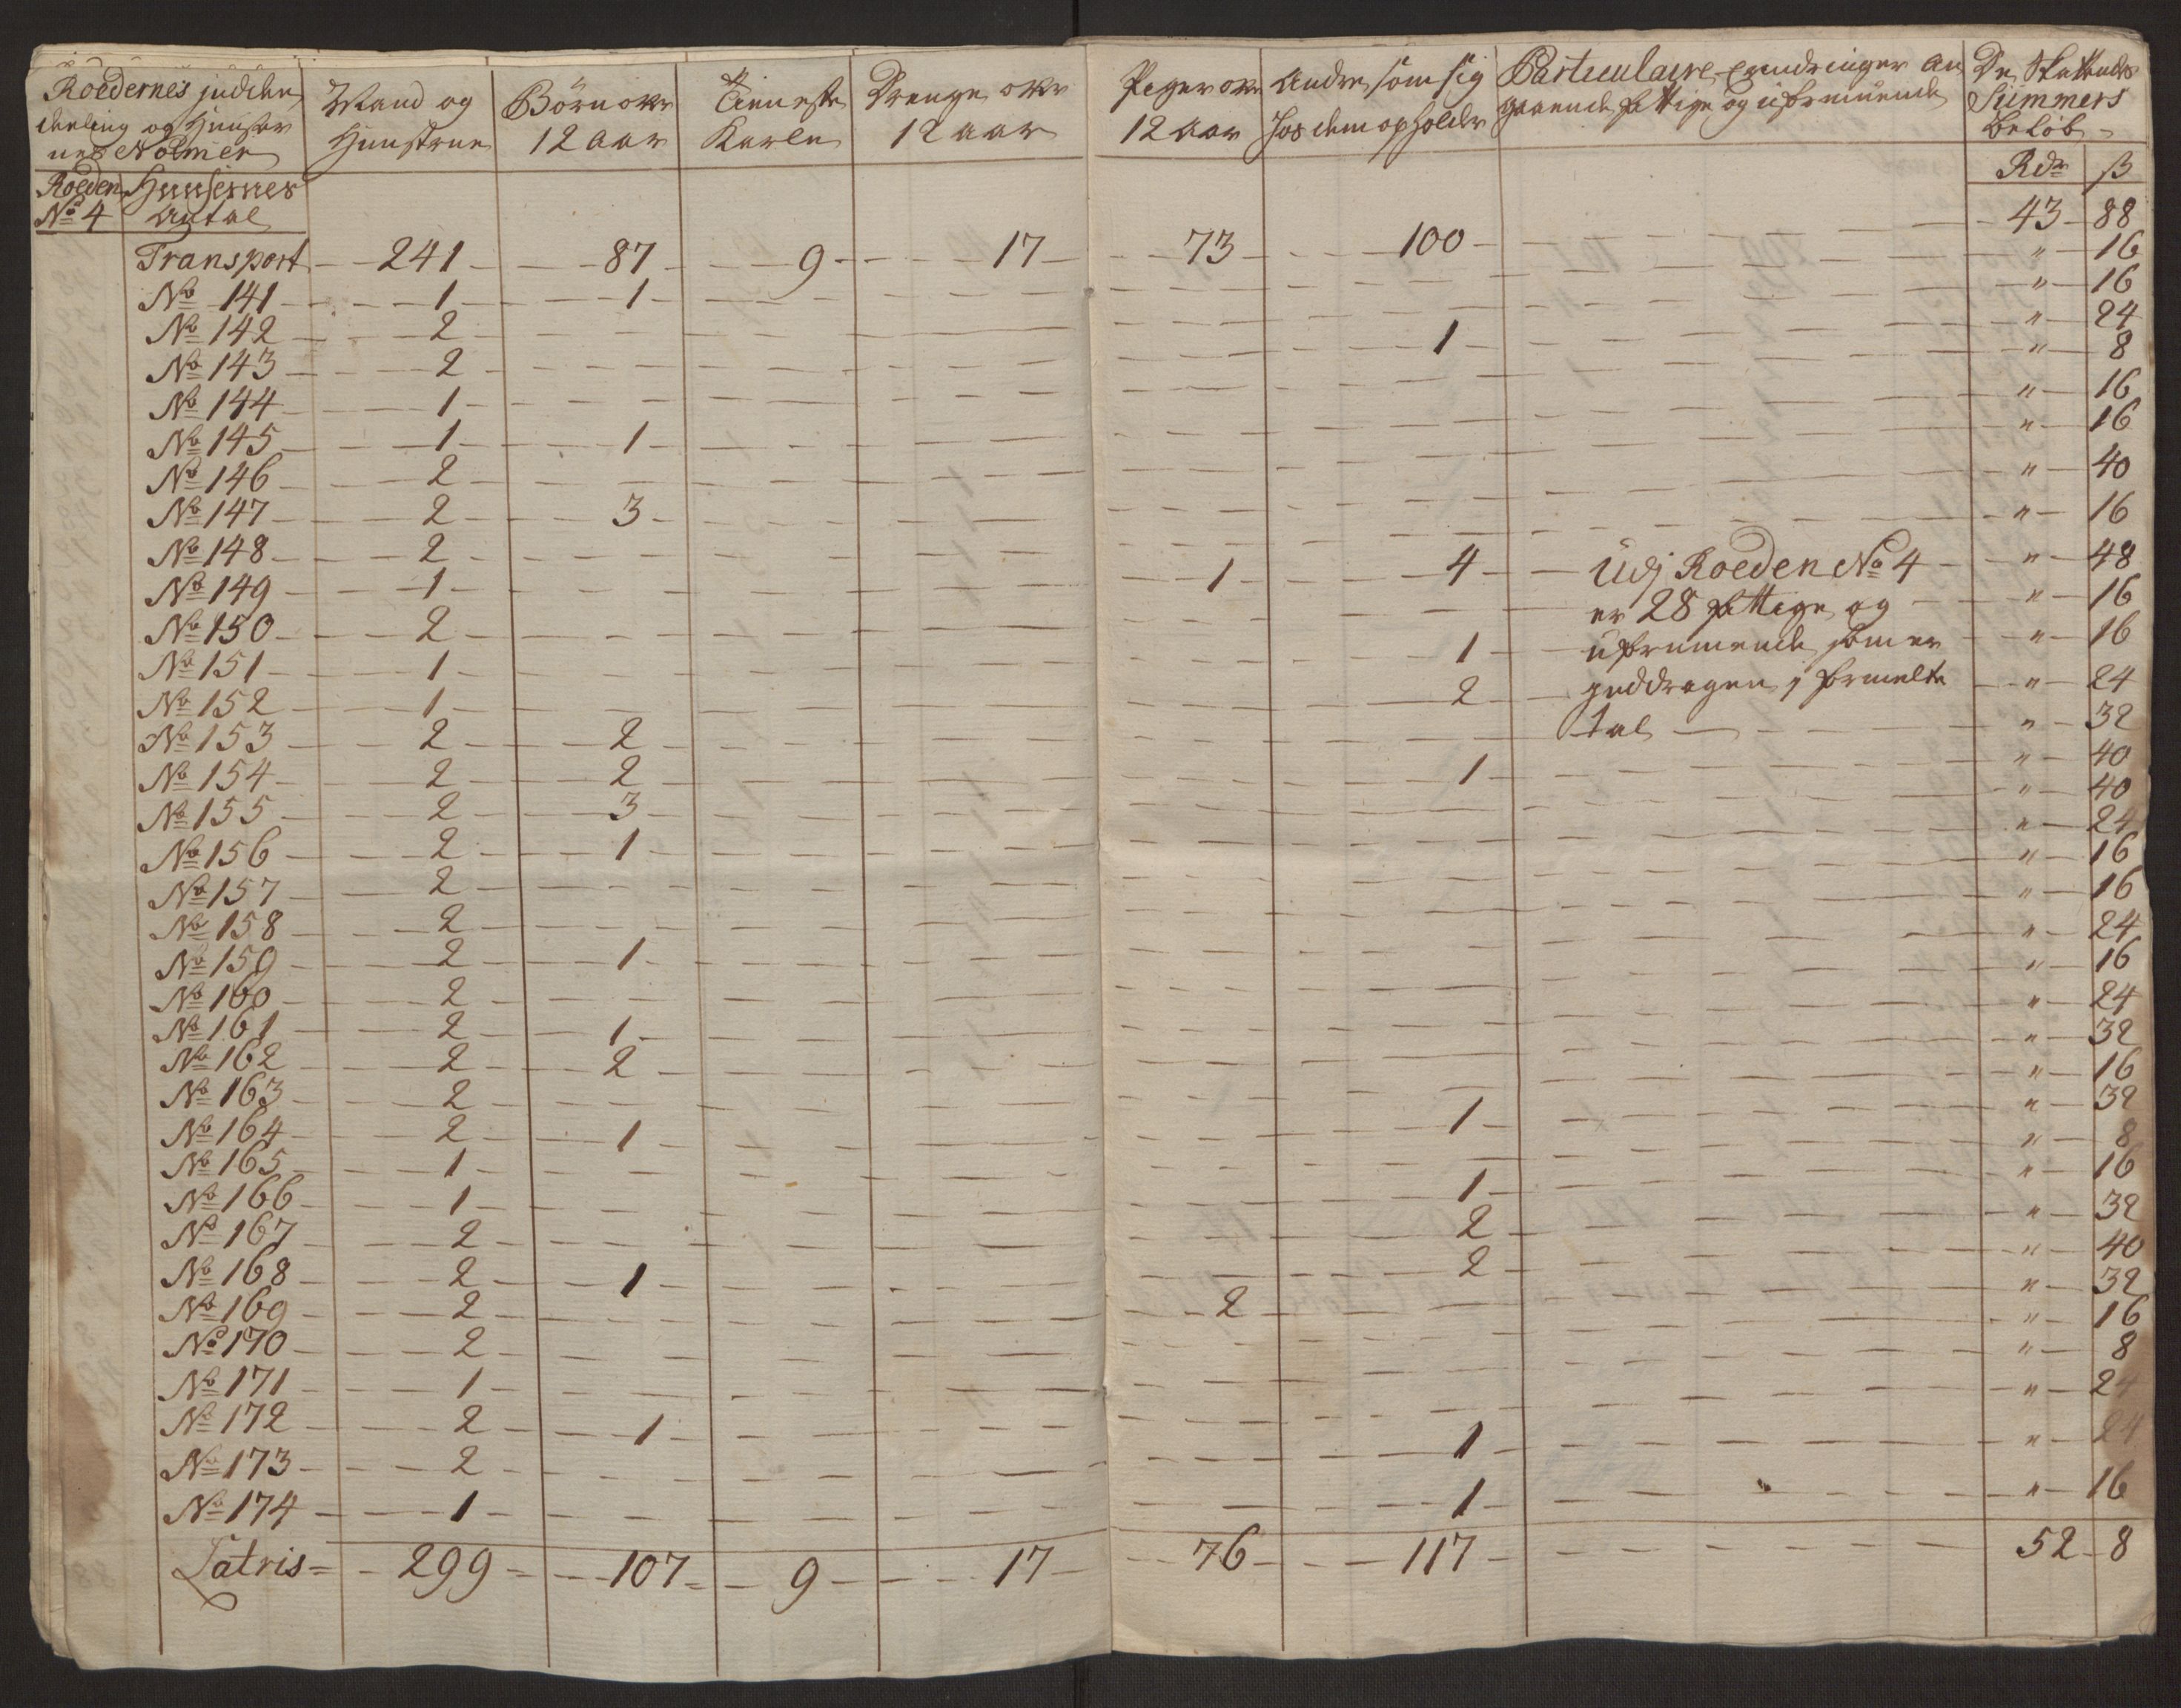 Roedernes jnddeh Mand og Børn over Tieneste Drenge over Piger over Andre som sig Particulaire erindringer an De Skattendes
deeling og Huuser Hunstrue 12 aar Karle 12 aar 12 aar hos dem opholder gaaende fattige og uformuende Summers
nes Nolmer beløb
Roeden Huusernes Rdr ß
No 4 Antal
Transport 241 87 9 17 73 100 43 88
No 141 1 1 " 16
No 142 2 " 16
No 143 2 1 " 24
No 144 1 " 8
No 145 1 1 " 16
No 146 2 " 16
No 147 2 3 " 40
No 148 2 " 16
No 149 1 1 4 Udj Roeden No 4 " 48
No 150 2 er 28 fattige og " 16
No 151 1 1 uformuende som er " 16
No 152 1 2 jnddragen j formelte " 24
No 153 2 2 tal " 32
No 154 2 2 1 " 40
No 155 2 3 " 40
No 156 2 1 " 24
No 157 2 " 16
No 158 2 " 16
No 159 2 1 " 24
No 160 2 " 16
No 161 2 1 " 24
No 162 2 2 " 32
No 163 2 " 16
No 164 2 1 1 " 32
No 165 1 " 8
No 166 1 1 " 16
No 167 2 2 " 32
No 168 2 1 2 " 40
No 169 2 2 " 32
No 170 2 " 16
No 171 1 " 8
No 172 2 1 " 24
No 173 2 1 " 24
No 174 1 1 " 16
Latris 299 107 9 17 76 117 52 8